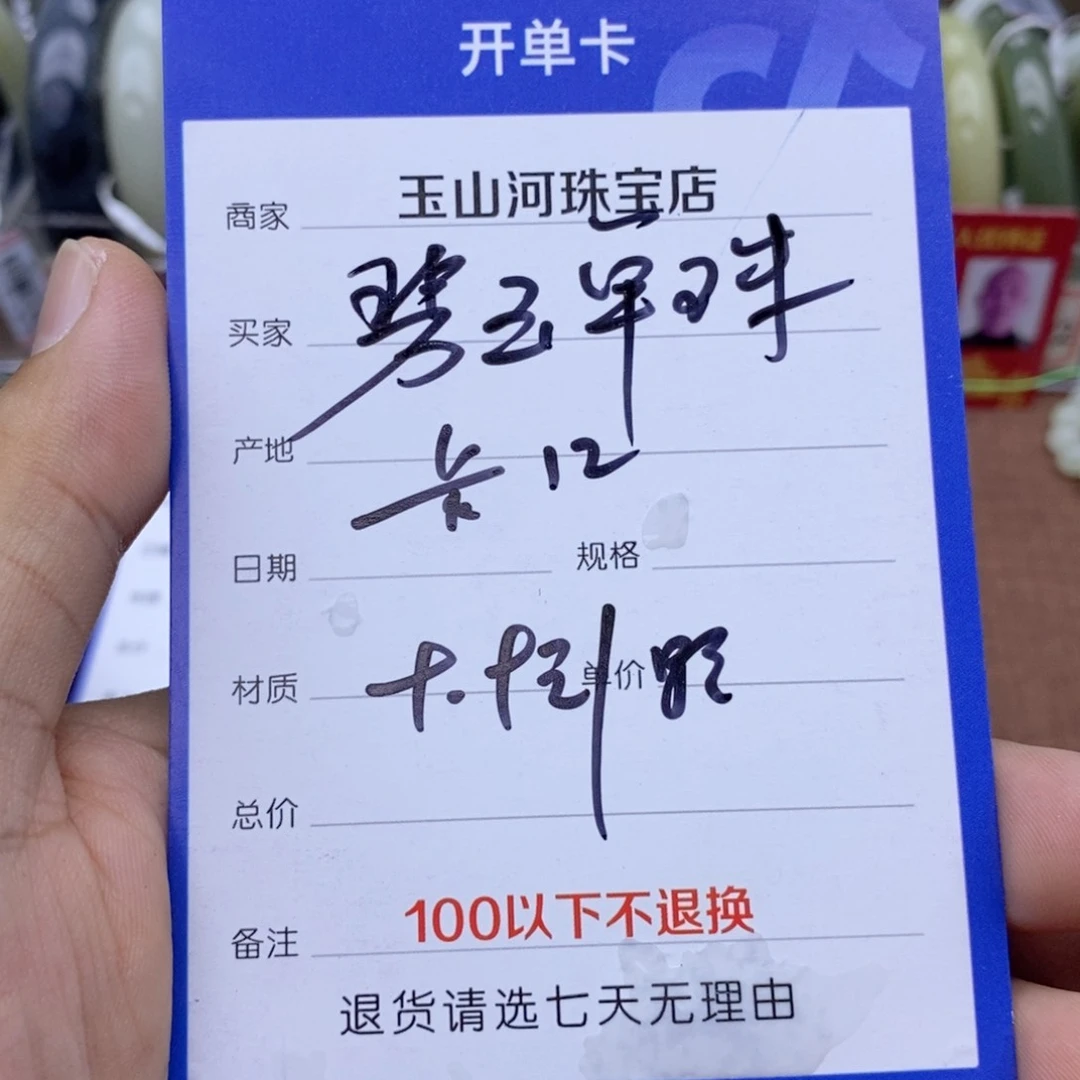 开单卡
商家 玉山河珠宝店
买家 碧玉单珠
产地
卡12
日期 规格
材质 单价
总价
备注 100以下不退换
退货请选七天无理由